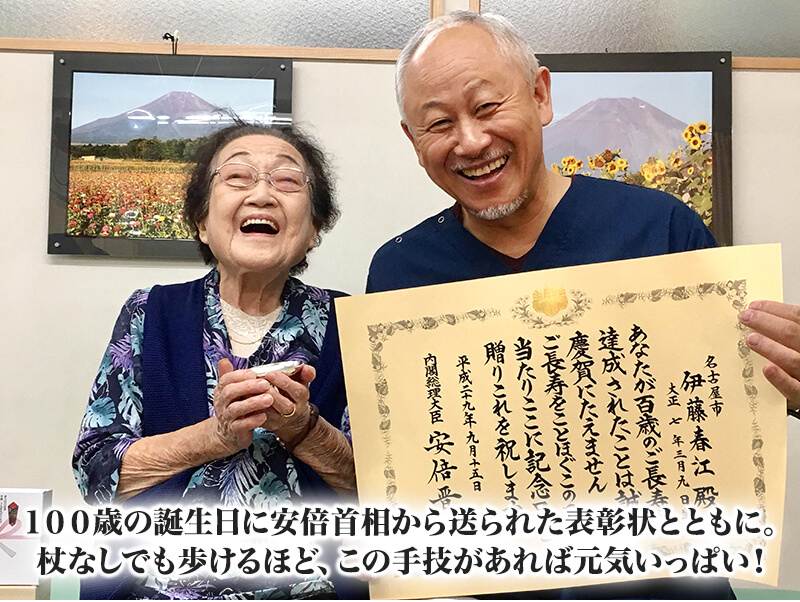 名古屋市
伊藤春江 殿
大正 七年三月九日
あなたが百歳のご長寿
達成されたことは誠
慶賀にたえません
ご長寿をことほぐこの
当たりここに記念品
贈りこれを祝しま
平成二十九年九月十五日
内閣総理大臣 安倍晋
100歳の誕生日に安倍首相から送られた表彰状とともに。
杖なしでも歩けるほど、この手技があれば元気いっぱい！